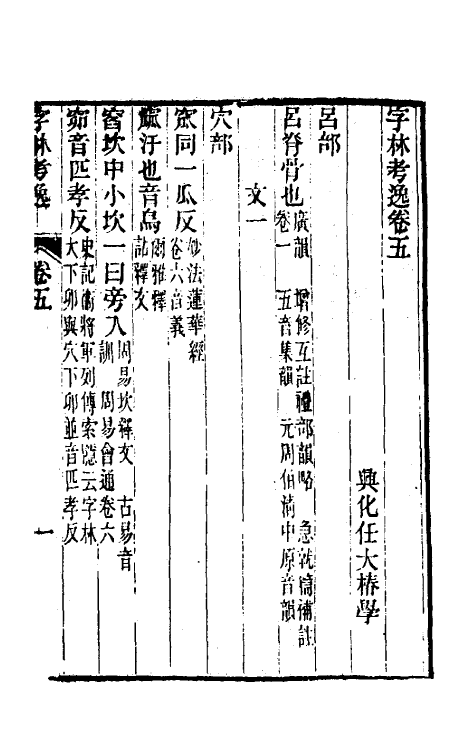 字林考逸卷五
興化任大椿學
呂部
呂脊骨也廣韻 增修互註禮部韻略 急就篇補註
卷一 五音集韻 元周伯淸中原音韻
文一
穴部
窊同一瓜反妙法蓮華經
卷六音義
汙也音烏爾雅釋
詁釋文
窞坎中小坎一曰旁入周易坎釋文 古易音
訓 周易會通卷六
窌音匹孝反史記衞將軍列傳索隱云字林
大下卯與穴下卯並音匹孝反
字林考逸 卷五 一